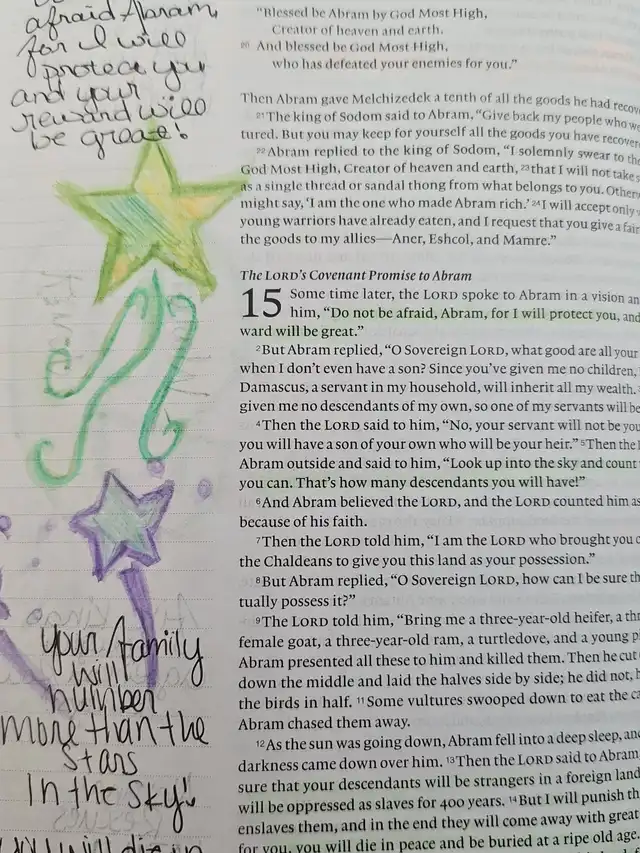 afraid Abram,
for I will
protect you
and your
reward will
be great!
your family
will
number
more than the
stars
In the sky!
you will die in
"Blessed be Abram by God Most High,
Creator of heaven and earth.
20 And blessed be God Most High,
who has defeated your enemies for you."
Then Abram gave Melchizedek a tenth of all the goods he had recov
21 The king of Sodom said to Abram, "Give back my people who we
tured. But you may keep for yourself all the goods you have recover
22 Abram replied to the king of Sodom, "I solemnly swear to the
God Most High, Creator of heaven and earth, 23 that I will not take s
as a single thread or sandal thong from what belongs to you. Other
might say, 'I am the one who made Abram rich.' 24 I will accept only
young warriors have already eaten, and I request that you give a fair
the goods to my allies—Aner, Eshcol, and Mamre."
The LORD's Covenant Promise to Abram
15 Some time later, the LORD spoke to Abram in a vision an
him, "Do not be afraid, Abram, for I will protect you, and
ward will be great."
2 But Abram replied, "O Sovereign LORD, what good are all your
when I don't even have a son? Since you've given me no children,
Damascus, a servant in my household, will inherit all my wealth.
given me no descendants of my own, so one of my servants will be
4 Then the LORD said to him, "No, your servant will not be you
you will have a son of your own who will be your heir." 5 Then the
Abram outside and said to him, "Look up into the sky and count
you can. That's how many descendants you will have!"
6 And Abram believed the LORD, and the LORD counted him as
because of his faith.
7 Then the LORD told him, "I am the LORD who brought you o
the Chaldeans to give you this land as your possession."
8 But Abram replied, "O Sovereign LORD, how can I be sure th
tually possess it?"
9 The LORD told him, "Bring me a three-year-old heifer, a thr
female goat, a three-year-old ram, a turtledove, and a young p
Abram presented all these to him and killed them. Then he cut
down the middle and laid the halves side by side; he did not, h
the birds in half. 11 Some vultures swooped down to eat the ca
Abram chased them away.
12 As the sun was going down, Abram fell into a deep sleep, and
darkness came down over him. 13 Then the LORD said to Abram
sure that your descendants will be strangers in a foreign land
will be oppressed as slaves for 400 years. 14 But I will punish th
enslaves them, and in the end they will come away with great
for you, you will die in peace and be buried at a ripe old age.